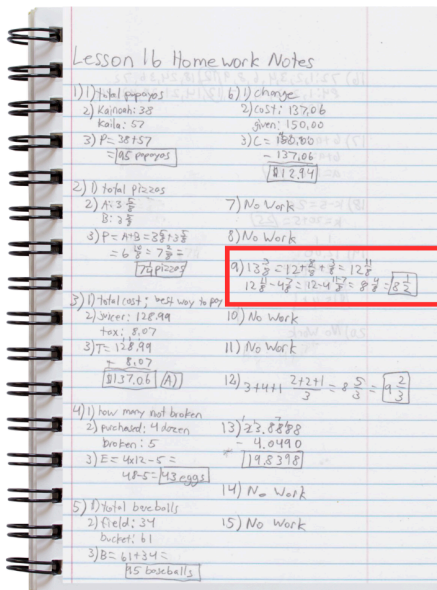 Lesson 16 Homework Notes
1) 1) total papayas
2) Kainoah: 38
Kaila: 57
3) P = 38+57
= 95 papayas
2) 1) total pizzas
2) A: 3 5/8
B: 3 5/8
3) P = A+B = 3 5/8 + 3 5/8
= 6 10/8 = 7 2/8 =
7 1/4 pizzas
3) 1) total cost; best way to pay
2) juicer: 128.99
tax: 8.07
3) T = 128.99
+ 8.07
$137.06 (A)
4) 1) how many not broken
2) purchased: 4 dozen
broken: 5
3) E = 4x12-5 =
48-5 = 43 eggs
5) 1) total baseballs
2) field: 34
bucket: 61
3) B = 61+34 =
95 baseballs
6) 1) change
2) cost: 137.06
given: 150.00
3) C = 150.00
- 137.06
$12.94
7) No Work
8) No Work
9) 13 3/8 = 12 + 8/8 + 3/8 = 12 11/8
8 1/2
10) No Work
11) No Work
12) 3+4+1 2+2+1/3 = 8 5/3 = 9 2/3
13) 23.8888
- 4.0490
19.8398
14) No Work
15) No Work